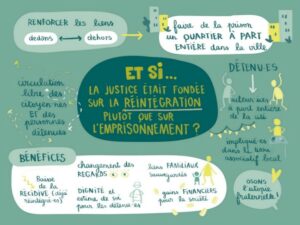 RENFORCER les liens
dedans
dehors
faire de la prison
un QUARTIER À PART
ENTIÈRE dans la ville
circulation
libre des
citoyen·nes
ET des
personnes
détenues
ET SI...
LA JUSTICE ÉTAIT FONDÉE
SUR LA RÉINTÉGRATION
PLUTÔT QUE SUR
L'EMPRISONNEMENT ?
DÉTENU·ES
à part entière
de la cité
impliqué·es
dans le tissu
associatif local
BÉNÉFICES
Baisse
de la
RÉCIDIVE (déjà
réintégré·es)
changement des
REGARDS
DIGNITÉ et
estime de soi
pour les détenu·es
liens FAMILIAUX
sauvegardés
gains FINANCIERS
pour la société
osons
l'utopie
fraternelle !